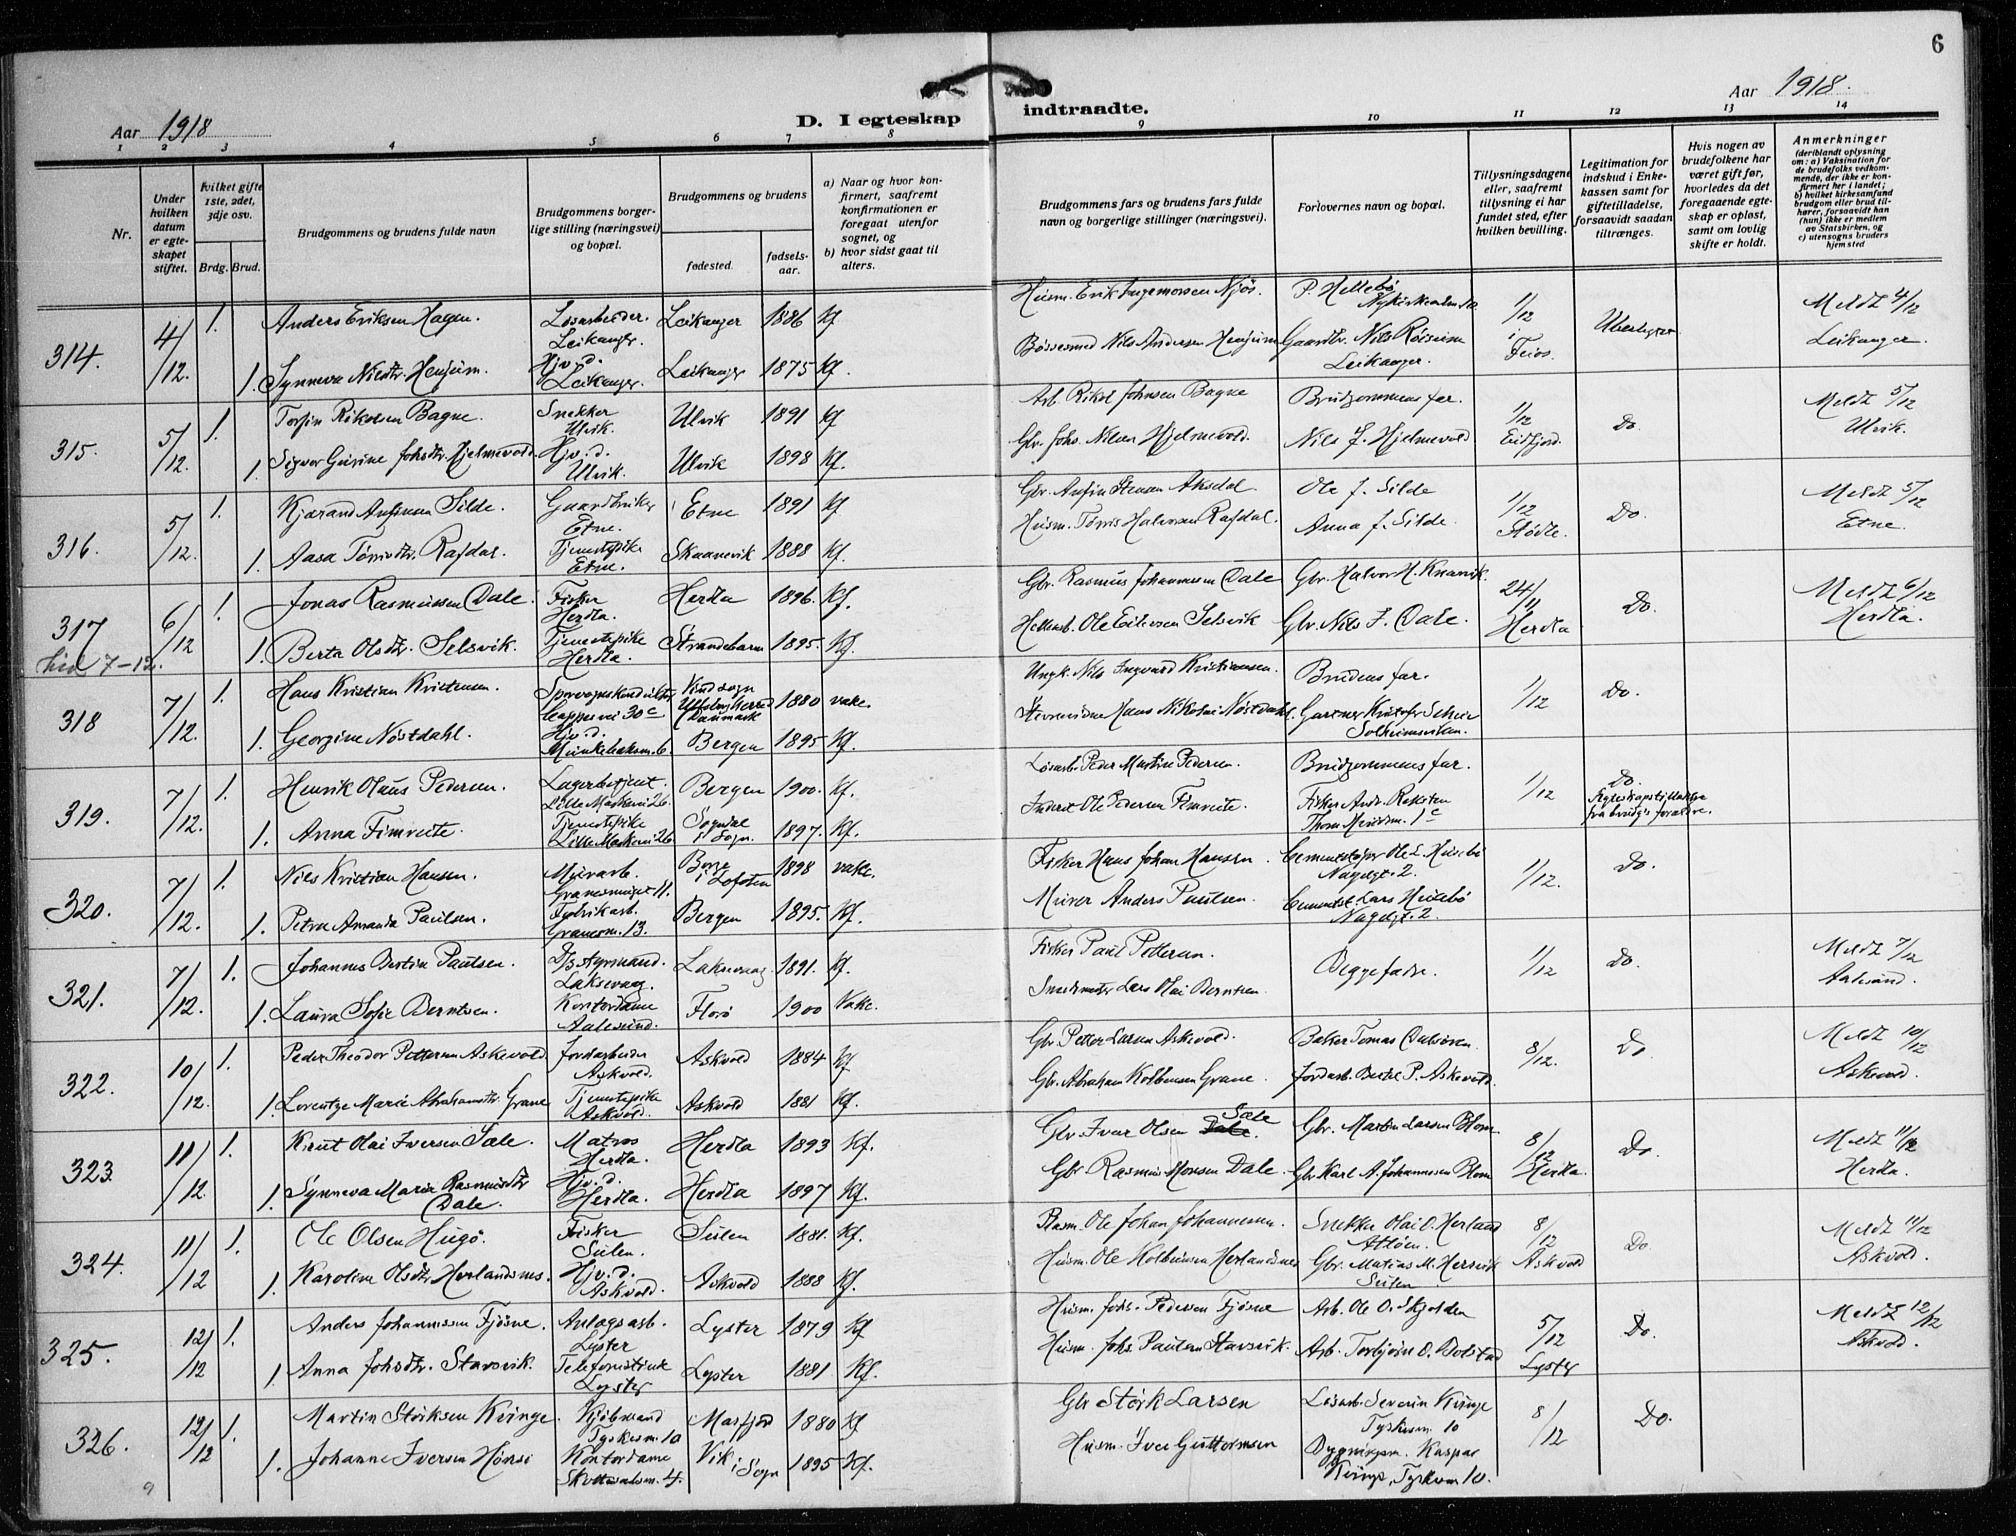 6
Aar 1918
D. I egteskap indtraadte.
Aar 1918.
1 2 3 4 5 6 7 8 9 10 11 12 13 14
Nr.
Under hvilken datum er egteskapet stiftet.
hvilket gifte 1ste, 2det, 3dje osv.
Brdg. Brud.
Brudgommens og brudens fulde navn
Brudgommens borgerlige stilling (næringsvei) og bopæl.
Brudgommens og brudens
fødested. fødselsaar.
a) Naar og hvor konfirmert, saafremt konfirmationen er foregaat utenfor sognet, og
b) hvor sidst gaat til alters.
Brudgommens fars og brudens fars fulde navn og borgerlige stillinger (næringsvei).
Forlovernes navn og bopæl.
Tillysningsdagene eller, saafremt tillysning ei har fundet sted, efter hvilken bevilling.
Legitimation for indskud i Enkekassen samt for giftetilladelse, forsaavidt saadan tiltrænges.
Hvis nogen av brudefolkene har været gift før, hvorledes da det foregaaende egteskap er opløst, samt om lovlig skifte er holdt.
Anmerkninger (deriblandt oplysning om: a) Vaksination for de brudefolks vedkommende, der ikke er konfirmert her i landet; b) hvilket kirkesamfund brudgom eller brud tilhører, forsaavidt han (hun) ikke er medlem av Statskirken, og c) utensogns bruders hjemsted
314. 4/12. 1. Anders Eriksen Hagen. Løsarbeider. Leikanger. Leikanger 1886 Kf. Husm. Erik Ingemorsen Njøs. P. Hellebø 1/12 i Feios. Meldt 4/12 Leikanger.
1. Synneva Nilsdtr. Henjum. Hjv. d. Leikanger. Leikanger 1875 Kf. Bøssesmed Nils Andersen Henjum Gaardbr. Nils Røisum Leikanger.
315. 5/12. 1. Torfin Rikolsen Bagne. Snekker Ulvik. Ulvik 1891 Kf Arb. Rikol Johnsen Bagne Brudgommens far. 1/12 Eidfjord. Do. Meldt 5/12 Ulvik.
1. Sigvor Gurine Johsdtr. Hjelmevold. Hjv. d. Ulvik. Ulvik 1898 Kf. Gbr. Johs. Nilsen Hjelmevold. Nils J. Hjelmevold
316. 5/12. 1. Kjærand Anfinsen Silde. Gaardbruker Etne. Etne 1891 Kf Gbr. Anfin Stensen Aksdal. Ole J. Silde 1/12 Stødle. Do. Meldt 5/12 Etne.
1. Aasa Tørrisdtr. Rafdal. Tjenestepike Etne. Skaanevik 1888 Kf. Husm. Tørris Halvorsen Rafdal. Anna J. Silde.
317 6/12 1. Jonas Rasmussen Dale. Fisker Herdla. Herdla 1896. Kf. Gbr. Rasmus Johannessen Dale Gbr. Halvor H. Knarvik. 24/11 Herdla Do. Meldt 6/12 Herdla.
1. Berta Olsdtr. Selsvik. Tjenestepike Herdla. Strandebarm 1895. Kf. Ole Selsvik Gbr. Nils J. Dale.
318 7/12. 1. Hans Kristian Kristensen. 30c Danmark 1880 vake. Ungk. Nils Ingvard Kristiansen. Brudens far. 1/12 Do.
1. Georgine Nøstdahl. Hjv. d. Bergen 1895 Kf. Hans Nikolai Nøstdahl. Gartner Solheimsviken.
319. 7/12. 1. Henrik Olaus Pedersen. Lagerbetjent. Bergen 1900. Kf. Løsarb. Peder Martin Pedersen. Brudgommens far. 1/12 Do.
1. Anna Fimreite. Tjenestepike Sogndal i Sogn. 1897. Kf. Inderst Ole Pedersen Fimreite. Fisker Andr. 1c
320. 7/12. 1. Nils Kristian Hansen. Murarb. 11. Borge i Lofoten 1898 vake. Fisker Hans Johan Hansen. 1/12. Do.
1. Petra Amanda Paulsen. Fabrikarb. 13. Bergen 1895. Kf. Murer Anders Paulsen. Lars
321. 7/12. 1. Johannes Bertin Paulsen. Laksevaag. Laksevaag 1891. Kf. Fisker Paul Pettersen. Begge fædre. 1/12 Do. Meldt 7/12 Aalesund.
1. Laura Sofie Berntsen. Kontordame Aalesund. Florø 1900 Vake. Lars Olai Berntsen.
322. 10/12. 1. Peder Theodor Pettersen Askevold Jordarbeider Askvold. Askvold 1884 Kf Gbr. Petter Larsen Askevold. Baker Tomas 8/12. Do. Meldt 10/12 Askevold.
1. Lorentze Marie Abrahamsdtr. Grane Tjenestepike Askvold. Askvold 1881 Kf. Gbr. Abraham Kolbensen Grane. Jordarb. Bertel P. Askevold.
323 11/12 1. Knut Olai Iversen Sæle. Matros Herdla. Herdla 1893 Kf. Gbr. Ivar Olsen Sæle Gbr. Martin Larsen Blom 8/12 Herdla. Do. Meldt 11/12 Herdla.
1. Synneva Marie Rasmusdtr Dale. Hjv. d. Herdla. Herdla 1897 Kf. Gbr Rasmus Monsen Dale. Gbr Karl A. Johannessen Blom
324. 11/12 1. Ole Olsen Hugø. Fisker Sulen. Sulen 1881. Kf. Ole Johan Johannessen. Snekker Olai O. Herland Atløen. 8/12 Askvold Do. Meldt 11/12 Askvold.
1. Karoline Olsdtr Herlandsnes. Hjv. d. Askvold. Askvold 1888 Kf. Husm. Ole Kolbensen Herlandsnes Gbr. Matias M. Hersvik Sulen
325. 12/12 1. Anders Johannessen Fjøsne. Anlægsarb. Lyster Lyster 1879 Kf Husm. Johs. Pedersen Fjøsne Arb. Ole O. Skjolden 5/12 Lyster Do. Meldt 12/12
1. Anna Johsdtr. Stavsvik. Telefonistinde Lyster Lyster 1881 Kf. Husm. Johs. Paulsen Stavsvik. Arb. Torbjørn O. Bolstad
326. 12/12 1. Martin Størksen Kvinge. Kjøbmand Tyskesm. 10 Masfjord 1880 Kf Gbr Størk Larsen Løsarb. Severin Kvinge Tyskesm. 10 8/12 Do.
1. Johanne Iversen Hønsi Kontordame 4. Vik i Sogn 1895 Kf. Husm. Iver Guttormsen Kaspar Kvinge, Tyskesm 10.